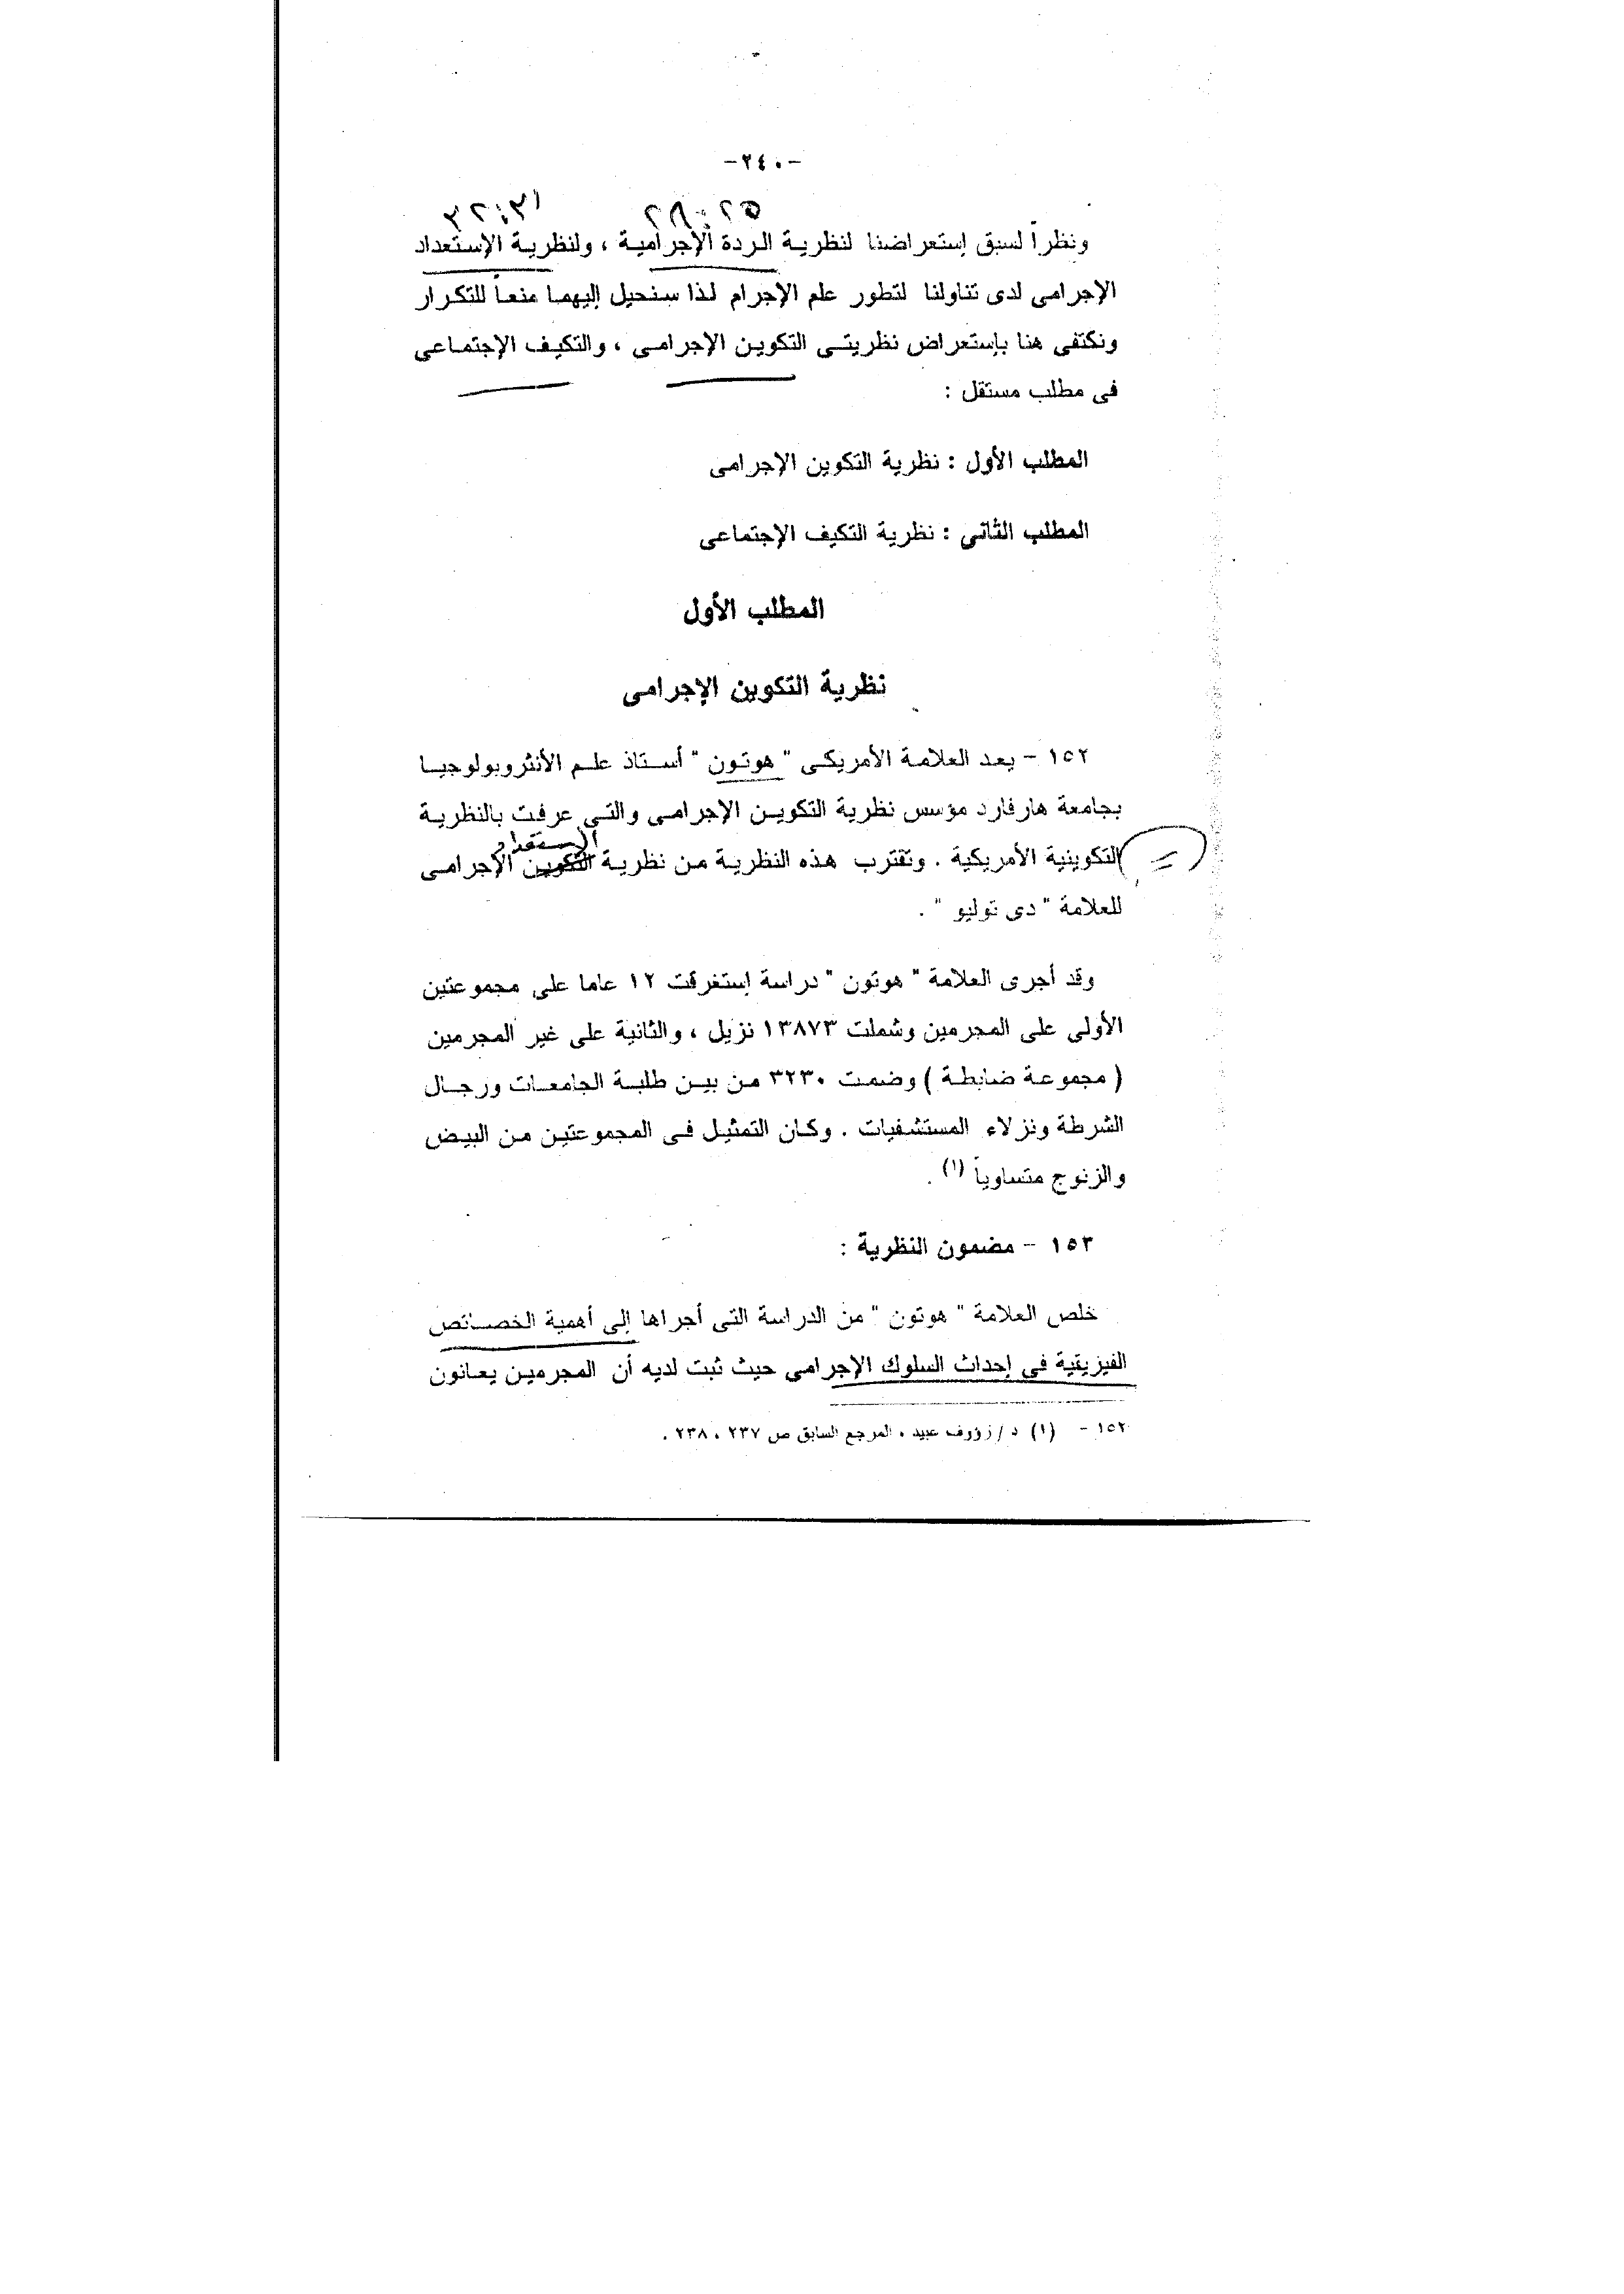 -٢٤٠-
٣٢:٣١ ٢٨:٢٥
ونظراً لسبق إستعراضنا لنظرية الردة الإجرامية ، ولنظرية الإستعداد
الإجرامى لدى تناولنا لتطور علم الإجرام لذا سنحيل إليهما منعاً للتكرار
ونكتفى هنا بإستعراض نظريتى التكوين الإجرامى ، والتكيف الإجتماعى
فى مطلب مستقل :
المطلب الأول : نظرية التكوين الإجرامى
المطلب الثانى : نظرية التكيف الإجتماعى
المطلب الأول
نظرية التكوين الإجرامى
١٥٢ - يعد العلامة الأمريكى " هوتون " أستاذ علم الأنثروبولوجيا
بجامعة هارفارد مؤسس نظرية التكوين الإجرامى والتى عرفت بالنظرية
الإستعداد
التكوينية الأمريكية . وتقترب هذه النظرية من نظرية التكوين الإجرامى
للعلامة " دى توليو " .
وقد أجرى العلامة " هوتون " دراسة إستغرقت ١٢ عاما على مجموعتين
الأولى على المجرمين وشملت ١٣٨٧٣ نزيل ، والثانية على غير المجرمين
( مجموعة ضابطة ) وضمت ٣٢٣٠ من بين طلبة الجامعات ورجال
الشرطة ونزلاء المستشفيات . وكان التمثيل فى المجموعتين من البيض
والزنوج متساوياً (١) .
١٥٣ - مضمون النظرية :
خلص العلامة " هوتون " من الدراسة التى أجراها إلى أهمية الخصائص
الفيزيقية فى إحداث السلوك الإجرامى حيث ثبت لديه أن المجرمين يعانون
١٥٢ - (١) د / رؤوف عبيد ، المرجع السابق ص ٢٣٧ ، ٢٣٨ .